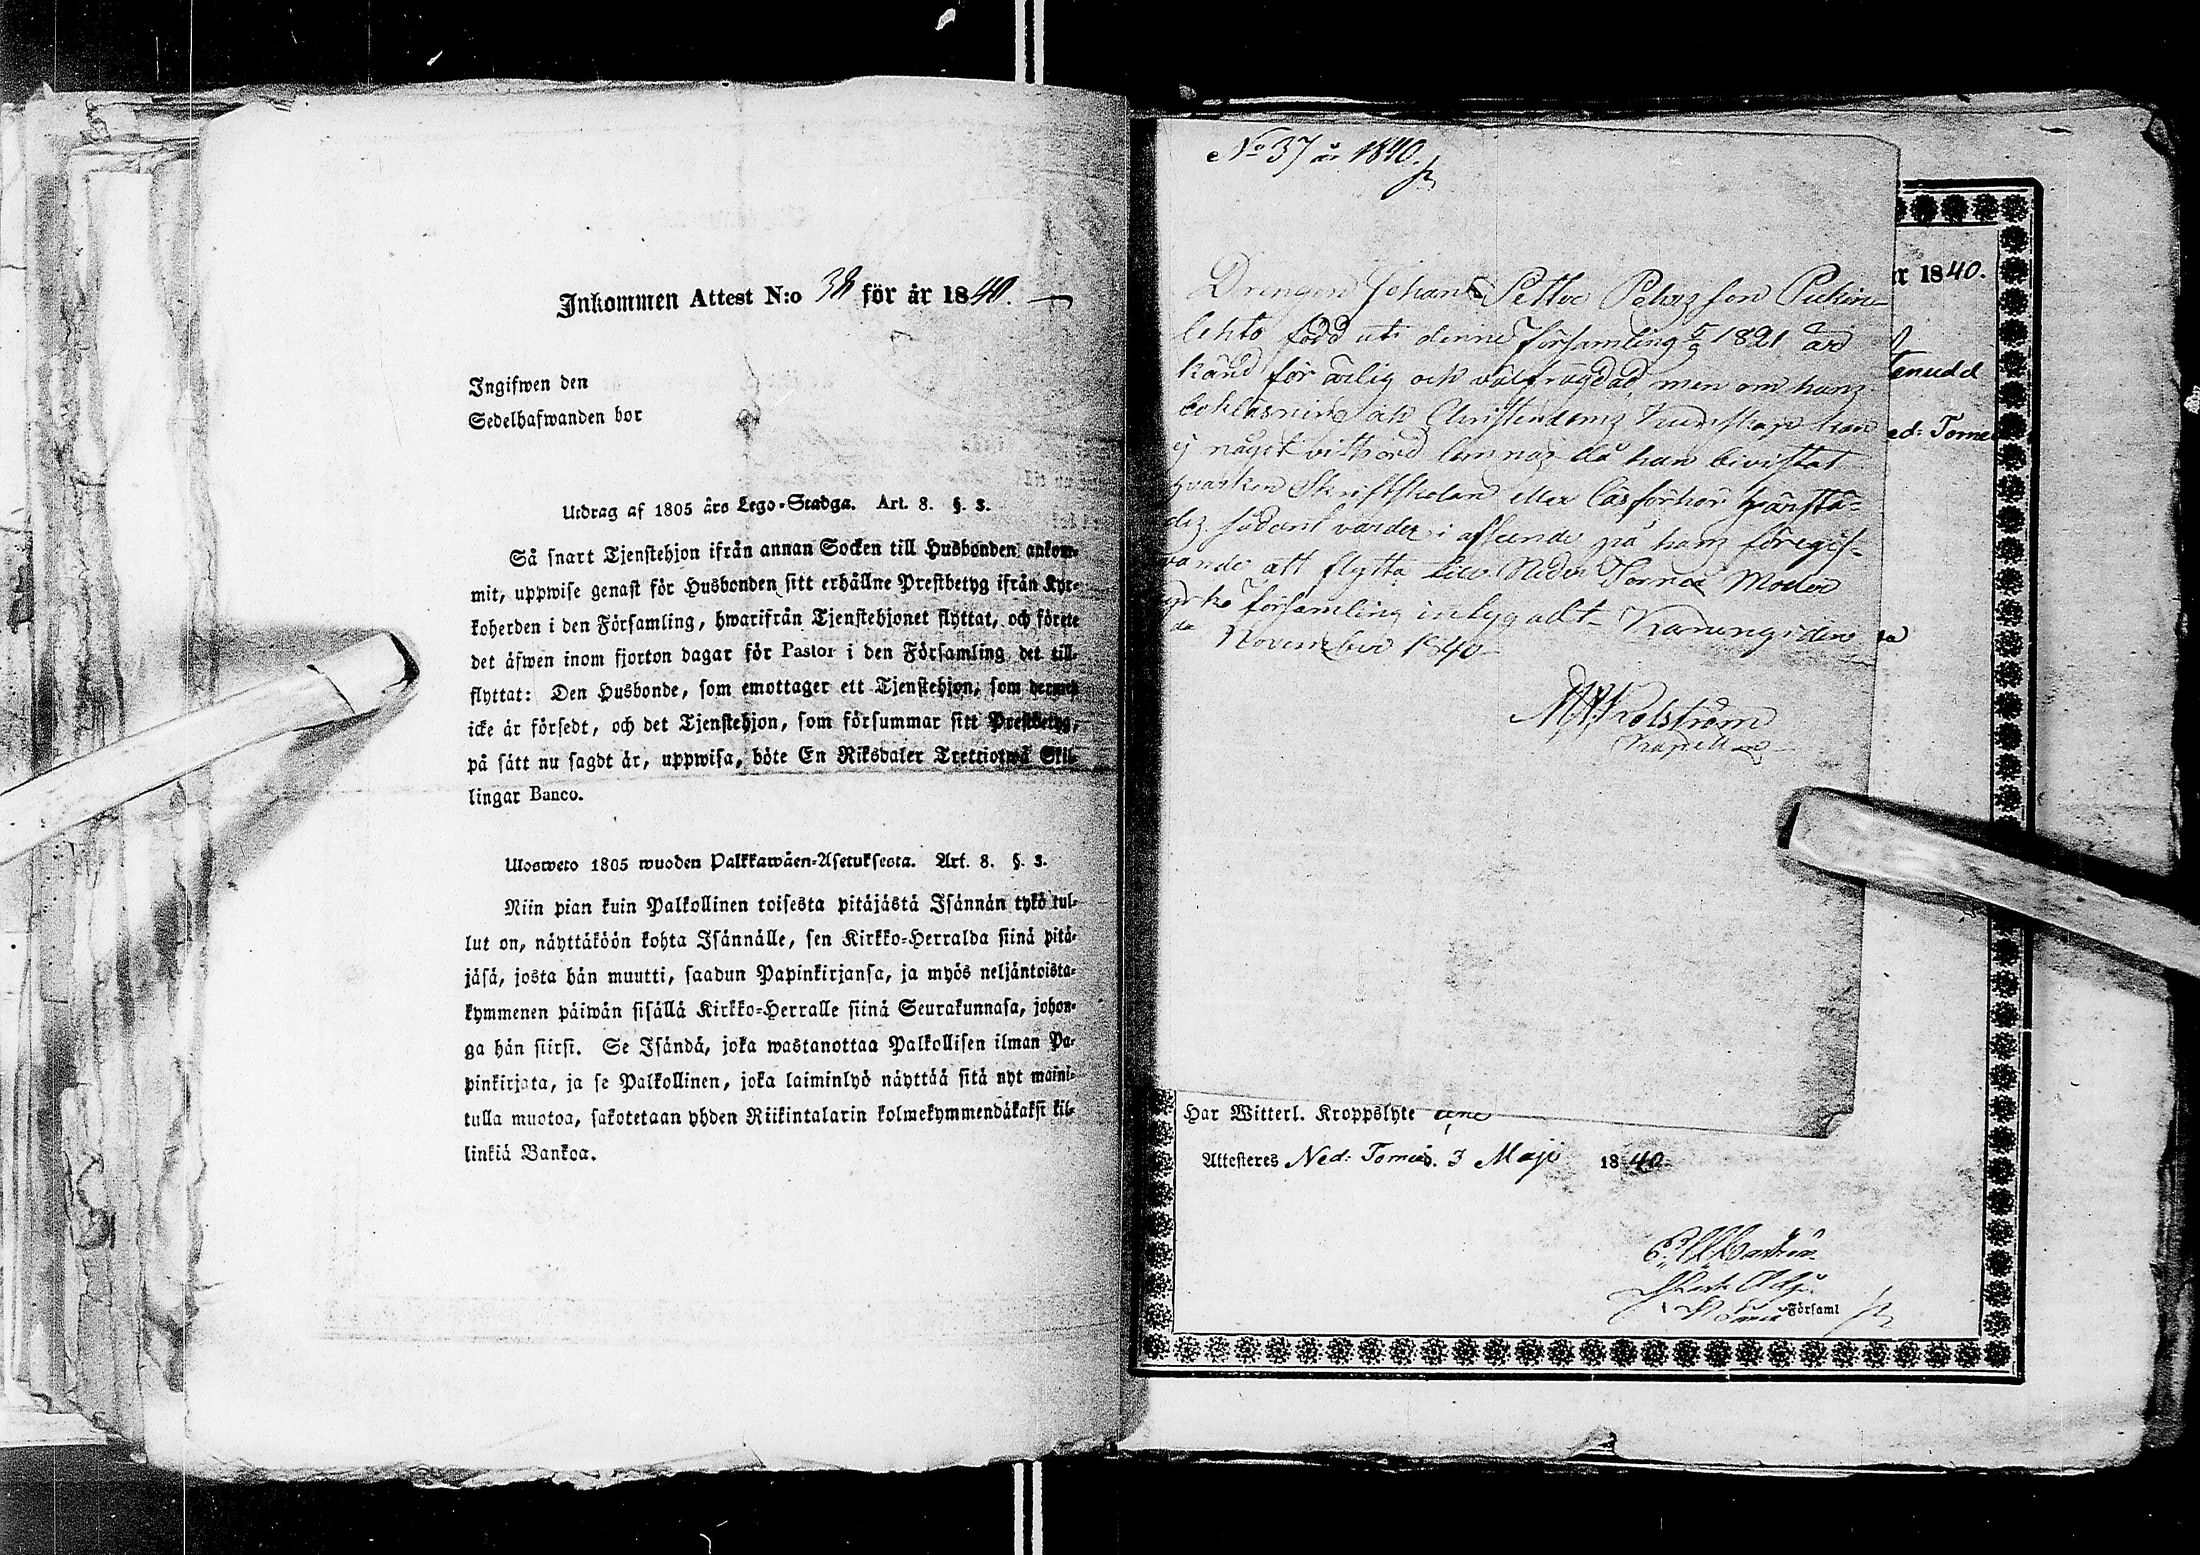 Inkommen Attest N:o 38 för år 1840.
Ingifwen den
Sedelhafwanden bor
Utdrag af 1805 års Lego-Stadga. Art. 8. §. 3.
Så snart Tjenstehjon ifrån annan Socken till Husbonden ankom-
mit, uppwise genast för Husbonden sitt erhållne Prestbetyg ifrån Kyr-
koherden i den Församling, hwarifrån Tjenstehjonet flyttat, och förete
det äfwen inom fjorton dagar för Pastor i den Församling det till-
flyttat: Den Husbonde, som emottager ett Tjenstehjon, som dermed
icke är försedt, och det Tjenstehjon, som försummar sitt Prestbetyg,
på sätt nu sagdt är, uppwisa, böte En Riksdaler Trettiotwå Skil-
lingar Banco.
Ulosweto 1805 wuoden Palkkawäen-Asetuksesta. Art. 8. §. 3.
Niin pian kuin Palkollinen toisesta pitäjästä Isännän tykö tul-
lut on, näyttäköön kohta Isännälle, sen Kirkko-Herralda siinä pitä-
jäsä, josta hän muutti, saadun Papinkirjansa, ja myös neljäntoista-
kymmenen päiwän sisällä Kirkko-Herralle siinä Seurakunnasa, johon-
ga hän siirsi. Se Isändä, joka wastanottaa Palkollisen ilman Pa-
pinkirjata, ja se Palkollinen, joka laiminlyö näyttää sitä nyt maini-
tulla muotoa, sakotetaan yhden Riikintalarin kolmekymmendäkaksi kil-
linkiä Bankoa.
No 37 år 1840.
Drengen Johan Petter Pehrsson Pukin-
lehto född uti denne församling 5/9 1821 är
känd för ärlig och välfrägdad, men om hans
bokläsning och Christendoms Kunskap kan
ej något vittnord lemnas då han bivistat
hvarken Skriftskolan eller läsförhör
sådant varder i afseende på hans föregif-
vande att flytta till Neder Torneå Moder
kyrko församling intygadt. Karungi den
November 1840
Kolström
Kapellan
r 1840.
enudd
ed: Torneå
Har Witterl. Kroppslyte
Attesteres Ned: Torneå d. 3 Maji 1840.
i N Torneå Församl